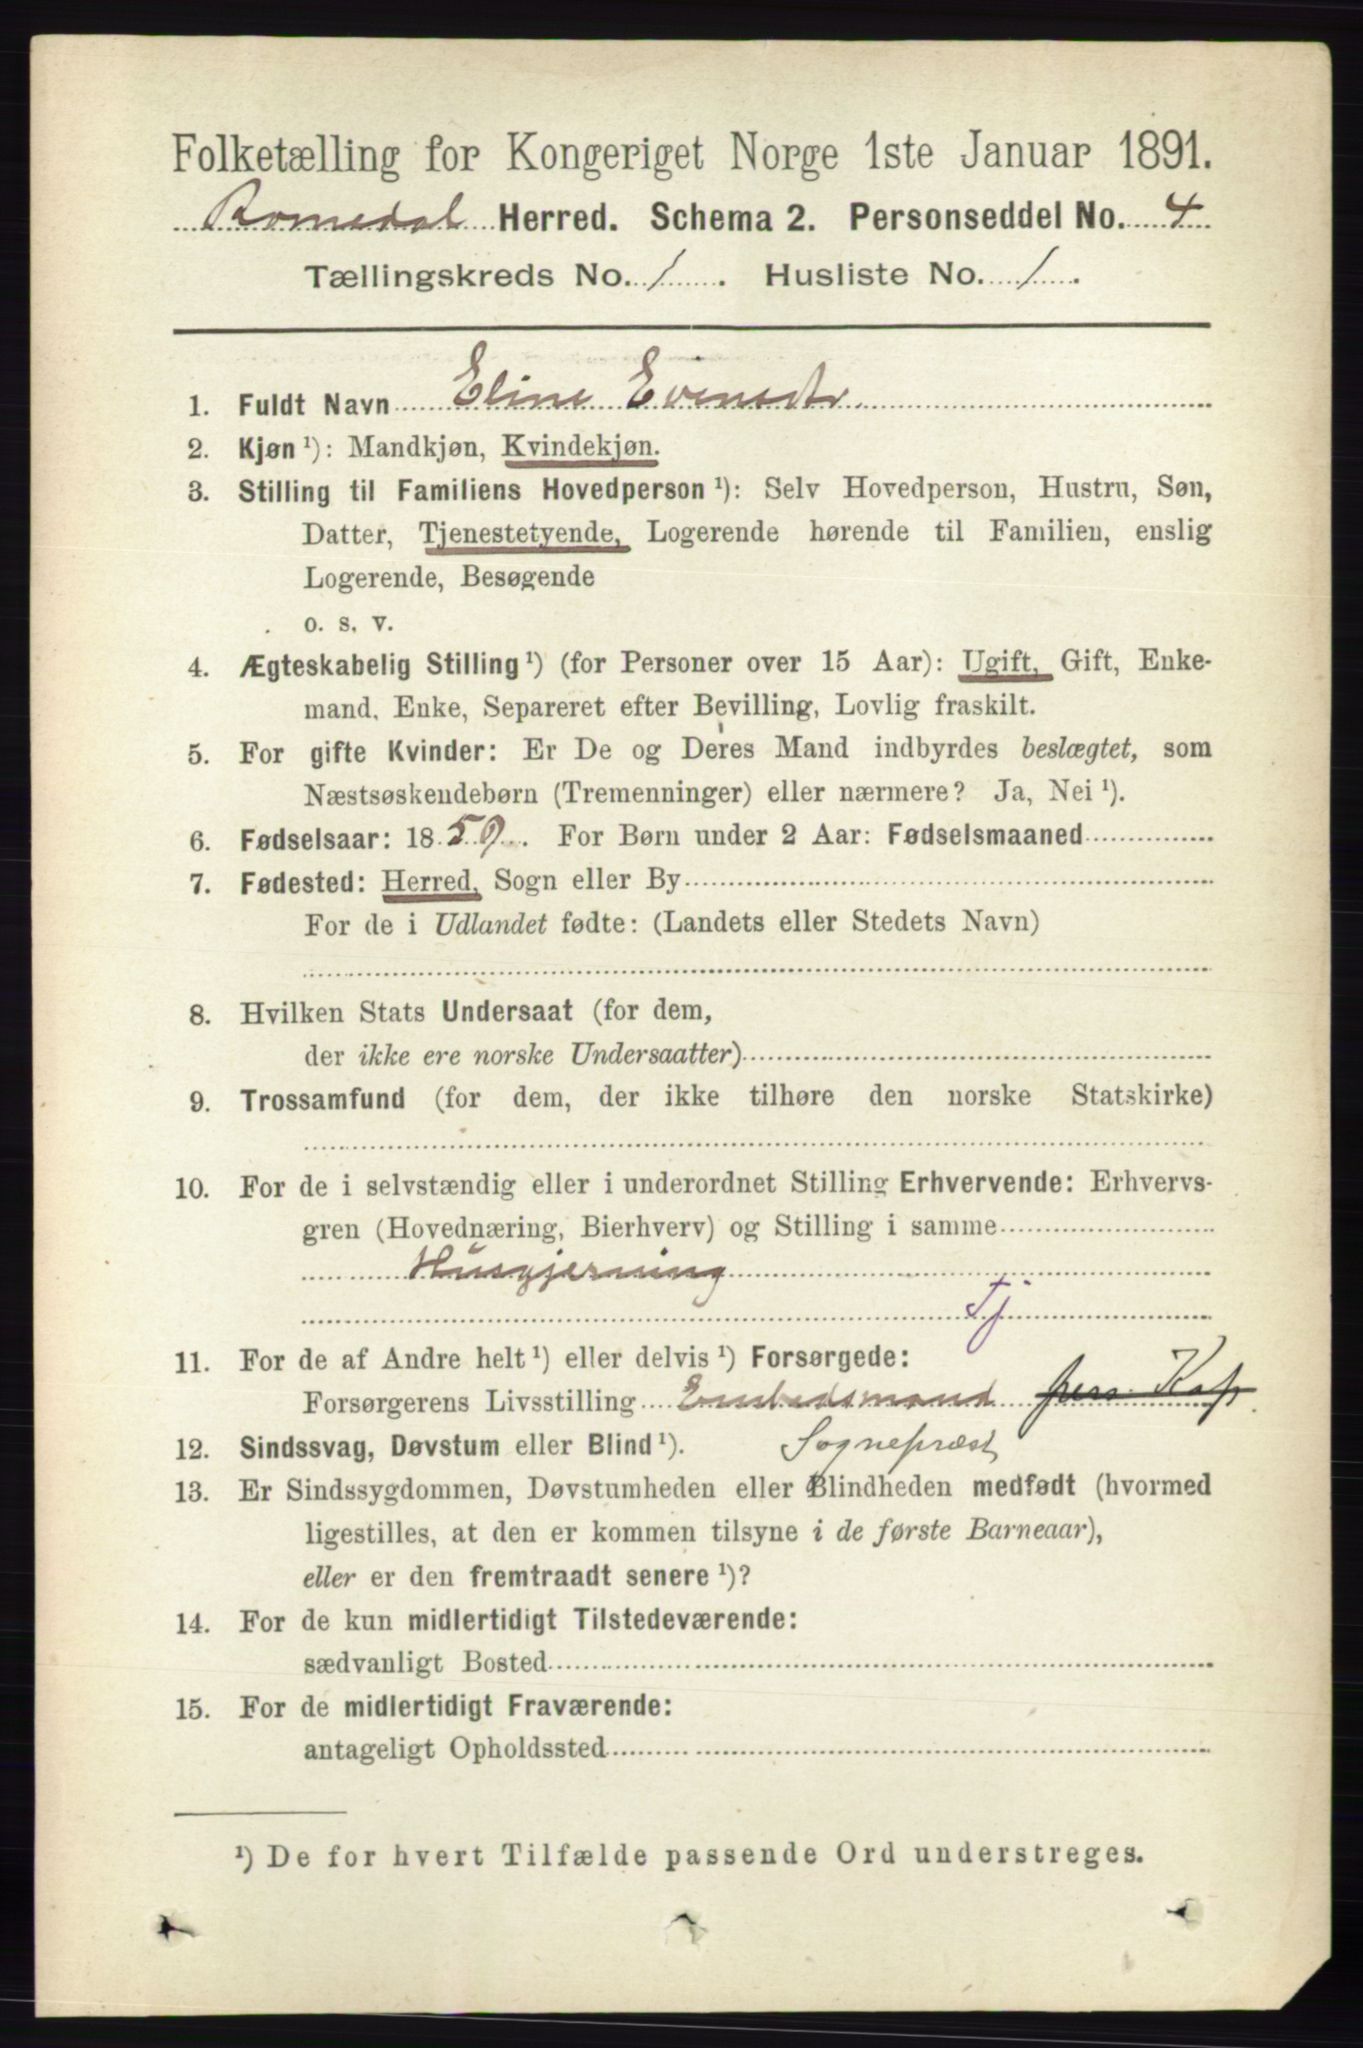 Folketælling for Kongeriget Norge 1ste Januar 1891.
Romedal Herred. Schema 2. Personseddel No. 4
Tællingskreds No. 1. Husliste No. 1.
1. Fuldt Navn Eline Evensdtr.
2. Kjøn ¹): Mandkjøn, Kvindekjøn.
3. Stilling til Familiens Hovedperson ¹): Selv Hovedperson, Hustru, Søn,
Datter, Tjenestetyende, Logerende hørende til Familien, enslig
Logerende, Besøgende
o. s. v.
4. Ægteskabelig Stilling ¹) (for Personer over 15 Aar): Ugift, Gift, Enke-
mand, Enke, Separeret efter Bevilling, Lovlig fraskilt.
5. For gifte Kvinder: Er De og Deres Mand indbyrdes beslægtet, som
Næstsøskendebørn (Tremenninger) eller nærmere? Ja, Nei ¹).
6. Fødselsaar: 1859. For Børn under 2 Aar: Fødselsmaaned
7. Fødested: Herred, Sogn eller By
For de i Udlandet fødte: (Landets eller Stedets Navn)
8. Hvilken Stats Undersaat (for dem,
der ikke ere norske Undersaatter)
9. Trossamfund (for dem, der ikke tilhøre den norske Statskirke)
10. For de i selvstændig eller i underordnet Stilling Erhvervende: Erhvervs-
gren (Hovednæring, Bierhverv) og Stilling i samme
Husgjerning
Tj
11. For de af Andre helt ¹) eller delvis ¹) Forsørgede:
Forsørgerens Livsstilling Embedsmand pers. Kap.
12. Sindssvag, Døvstum eller Blind ¹). Sognepræst
13. Er Sindssygdommen, Døvstumheden eller Blindheden medfødt (hvormed
ligestilles, at den er kommen tilsyne i de første Barneaar),
eller er den fremtraadt senere ¹)?
14. For de kun midlertidigt Tilstedeværende:
sædvanligt Bosted
15. For de midlertidigt Fraværende:
antageligt Opholdssted
¹) De for hvert Tilfælde passende Ord understreges.